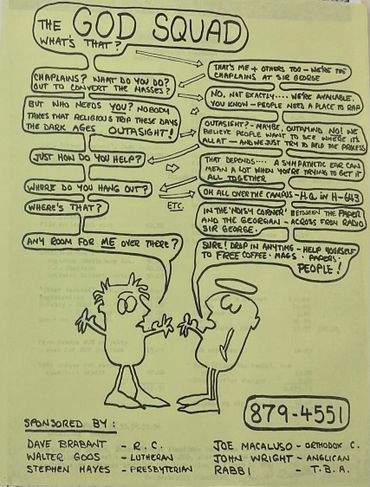 THE GOD SQUAD
WHAT'S THAT?
THAT'S ME + OTHERS TOO - WE'RE THE
CHAPLAINS AT SIR GEORGE
CHAPLAINS? WHAT DO YOU DO?
OUT TO CONVERT THE MASSES?
NO, NOT EXACTLY.... WE'RE AVAILABLE,
YOU KNOW - PEOPLE NEED A PLACE TO RAP
BUT WHO NEEDS YOU? NOBODY
TAKES THAT RELIGIOUS TRIP THESE DAYS
THE DARK AGES OUTASIGHT!
OUTASIGHT? - MAYBE, OUTAMIND NO! WE
BELIEVE PEOPLE WANT TO SEE WHERE IT'S
ALL AT - AND WE JUST TRY TO HELP THE PROCESS
JUST HOW DO YOU HELP?
THAT DEPENDS.... A SYMPATHETIC EAR CAN
MEAN A LOT WHEN YOU'RE TRYING TO GET IT
ALL TOGETHER
WHERE DO YOU HANG OUT?
OH ALL OVER THE CAMPUS - H.Q. IN H-643
WHERE'S THAT?
ETC.
IN THE 'NOISY CORNER' BETWEEN THE PAPER
AND THE GEORGIAN - ACROSS FROM RADIO
SIR GEORGE.
ANY ROOM FOR ME OVER THERE?
SURE! DROP IN ANYTIME - HELP YOURSELF
TO FREE COFFEE · MAGS · PAPERS ·
PEOPLE!
879-4551
SPONSORED BY:
DAVE BRABANT - R.C.
WALTER GOOS - LUTHERAN
STEPHEN HAYES - PRESBYTERIAN
JOE MACALUSO - ORTHODOX C.
JOHN WRIGHT - ANGLICAN
RABBI - T.B.A.